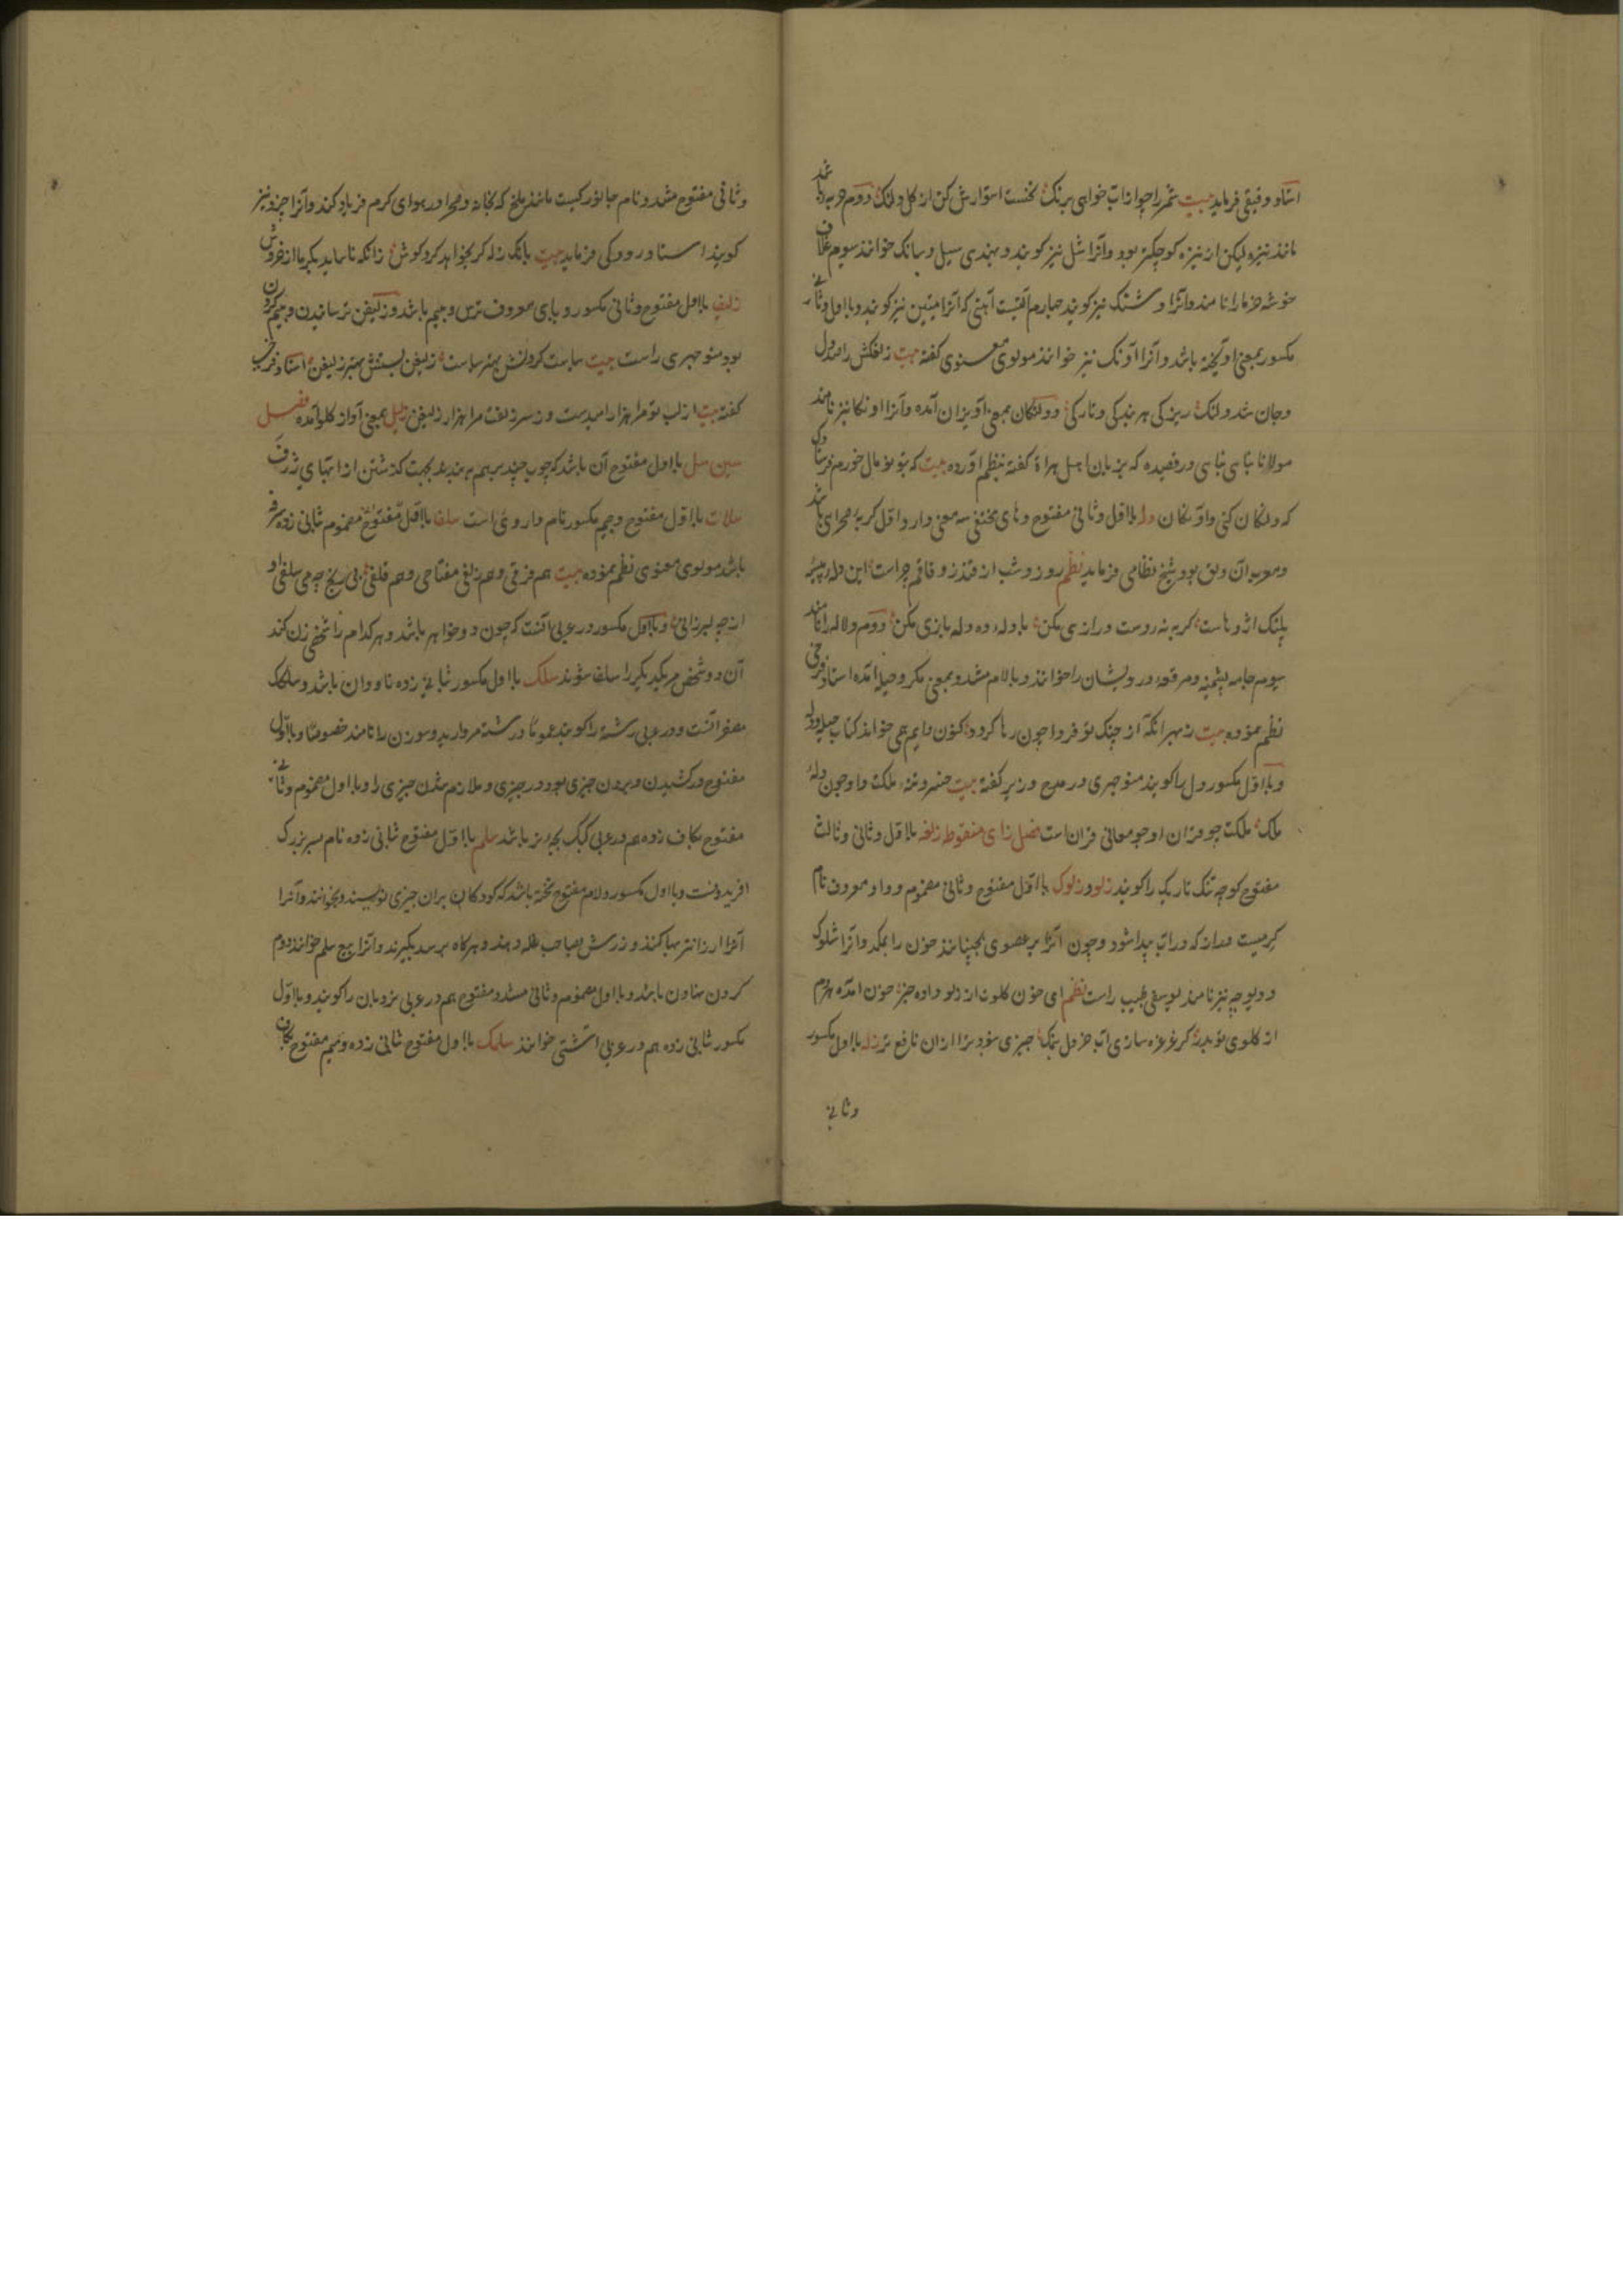 استاد دقیقی فرماید بیت ثمر را چو از آب خواهی برنک نخست استوارش کن از کل ولنک دوم حربه باشد
مانند نیزه لیکن از نیزه کوچکتر بود وآنرا شل نیز کویند و بهندی سیل و سانک خوانند سیوم غلاف
خوشه خرما را نامند وآنرا و شنک نیز کویند چهارم آلتیست آهنی که آنرا میتین نیز کویند و با اول وثانی
مکسور بمعنی آویخته باشد وآنرا آونک نیز خوانند مولوی معنوی کفته بیت زلفکش را دول
وجان شد ولنک ریزکی هر بندکی وتارکی و ولنکان بمعنی آویزان آمده وآنرا اونکا نیز نامند
مولانا بنای در قصیده که بزبان اهل هراة کفته بنظم آورده بیت که بتو بز مال خورم
که ولنکان کنی واونکان وله با اول وثانی مفتوح و های مختفی سه معنی دارد اول کربه صحرای باشد
ومعرب آن ولق بود شیخ نظامی فرماید نظم روز وشب از قندز و قاقم چراست این وله پیسه
پلنک اژدهاست کربه نه دست درازی مکن با وله ده وله بازی مکن دوم ولاله را نامند
سیوم جامه پشمینه ومرقعه درویشان را خوانند و بالام مشدد بمعنی مکر وحیله آمده استاد فرخی
نظم نموده بیت زمهر آنکه از چنک تو فردا چون رها کردد کنون دایم همی خواند کتاب حیله ودله
و با اول مکسور دل را کویند منوچهری در مدح وزیر کفته بیت خسرو تنه ملکت و او چون وله
ملک ملکت چو قران او چو معانی قران است فصل زای منقوطه زلفه با اول وثانی وثالث
مفتوح کوچه تنک تاریک را کویند زلو وزلوک با اول مفتوح وثانی مضموم و واو معروف نام
کرمیست که در آب پیدا شود وچون آنرا بر عضوی بچسبانند خون را بمکد وآنرا شلوک
و دیوچه نیز نامند یوسفی طبیب راست نظم ای خون کلوت از زلو داده خبر خون آمده هردم
از کلوی تو بدر کر غرغره سازی آب خردل بنمک چیزی نبود ترا از آن نافع تر زله با اول مکسور
وثانی
وثانی مفتوح مشدد نام جانورکیست مانند ملخ که بخانه وصحرا در هوای کرم فریاد کند وآنرا چزد نیز
کویند استاد رودکی فرماید بیت بانک زله کر بخواهد کرد کوش زانکه ناساید بکرما از خروش
زلیف با اول مفتوح وثانی مکسور و یای معروف ترس و بیم باشد و زلیفن ترسانیدن و بیم کردن
بود منوچهری راست بیت سیاست کردنش بهتر سیاست زلیفن بستنش بهتر زلیفن استاد فرخی
کفته بیت از لب تو مرا هزار امیدست وز سر زلفت مرا هزار زلیفن زلیل بمعنی آواز کلو آمده فصل
سین سل با اول مفتوح آن باشد که چوب چند بر هم ببندند بجهت کذشتن از آبهای ژرف
سلات با اول مفتوح وجیم مکسور نام داروی است سلفا با اول مفتوح مضموم ثانی زده سرفه
باشد مولوی معنوی نظم نموده بیت هم فرقی وهم زلفی مفتاحی وهم قلفی بی رنج چه می سلفی آواز
از چه لرزانی و با اول مکسور در عربی آنست که چون دو خواهر باشد و هر کدام را شخصی زن کند
آن دو شخص مر یکدیکر را سلف شوند سلک با اول مکسور ثانی زده ناودان باشد و سلکک
مصغر آنست ودر عربی رشته را کویند عموما ورشته مروارید وسوزن را نامند خصوصا و با اول
مفتوح در کشیدن و بردن چیزی بود در چیزی و ملازم شدن چیزی را و با اول مضموم وثانی
مفتوح بکاف زده هم در عربی کبک بچه نر باشد سلم با اول مفتوح ثانی زده نام پسر بزرک
افریدونست و با اول مکسور و لام مفتوح تخته باشد که کودکان بران چیزی نویسند و بخوانند وآنرا
آنرا ارزانتر بها کنند وزرش بصاحب غله دهند و هرکاه برسد بکیرند وآنرا بیع سلم خوانند دوم
کردن نهادن باشد و با اول مضموم وثانی مشدد مفتوح هم در عربی نردبان را کویند و با اول
مکسور ثانی زده هم در عربی آشتی خوانند سلمک با اول مفتوح ثانی زده ومیم مفتوح بکاف